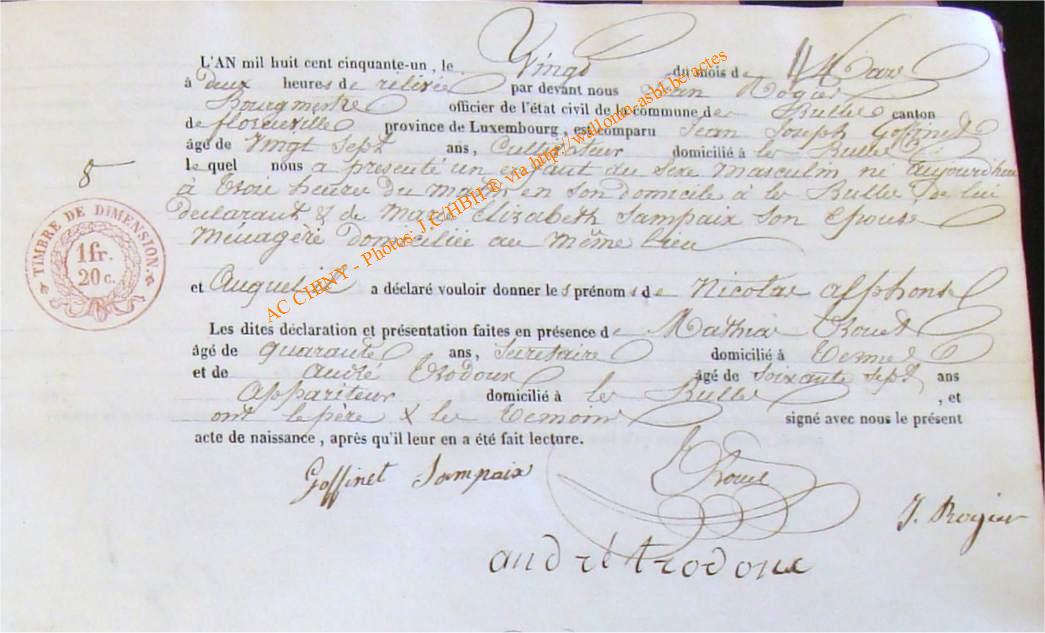 L'AN mil huit cent cinquante-un, le Vingt du mois de Mars
à deux heures de relevée par devant nous Jean Rogier
Bourgmestre officier de l'état civil de la commune de les Bulles canton
de florenville province de Luxembourg, est comparu Jean Joseph Goffinet
âgé de vingt sept ans, Cultivateur domicilié à les Bulles
le quel nous a présenté un enfant du sexe masculin né aujourd'hui
à trois heures du matin en son domicile à les Bulles de lui
declarant & de Marie Elizabeth Sampaix son epouse
Ménagère domiciliée au même lieu
et auquel il a déclaré vouloir donner les prénoms de Nicolas alphonse
Les dites déclaration et présentation faites en présence de Mathias
âgé de quarante ans, Secretaire domicilié à termes
et de André trodoux âgé de soixante sept ans
appariteur domicilié à les Bulles, et
ont le père & les temoins signé avec nous le présent
acte de naissance, après qu'il leur en a été fait lecture.
8
TIMBRE DE DIMENSION.
1 fr.
20 c.
Goffinet Sampaix
J. Rogier
andré trodoux
AC CHINY - Photos: J.C HBH ® via http://wallonia-asbl.be/actes